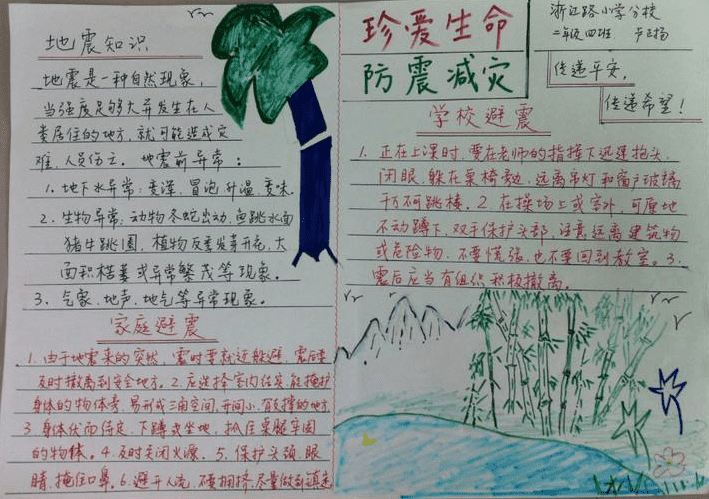 地震知识
地震是一种自然现象,
当强度足够大并发生在人
类居住的地方,就可能造成灾
难,人员伤亡。地震前异常:
1. 地下水异常:变浑,冒泡,升温,变味。
2. 生物异常:动物冬蛇出动,鱼跳水面
猪牛跳圈,植物反季发芽开花,大
面积枯萎或异常繁茂等现象。
3、气象、地声、地气等异常现象。
家庭避震
1. 由于地震来的突然,震时要就近躲避,震后要
及时撤离到安全地方。2. 应选择室内结实、能掩护
身体的物体旁,易形成三角空间,开间小,有支撑的地方
3 身体伏而待定,下蹲或坐地,抓住桌腿牢固
的物体。4. 及时关闭火源。5. 保护头颈、眼
睛,掩住口鼻。6. 避开人流,不要拥挤,尽量做到镇定
珍爱生命
防震减灾
浙江路小学分校
二年级四班
传递平安,
传递希望!
学校避震
1. 正在上课时,要在老师的指挥下迅速抱头
闭眼、躲在桌椅旁边,远离吊灯和窗户玻璃
千万不能跳楼。2. 在操场上或室外,可原地
不动蹲下,双手保护头部,注意远离建筑物
或危险物,不要慌张,也不要回到教室。3.
震后应当有组织积极撤离。